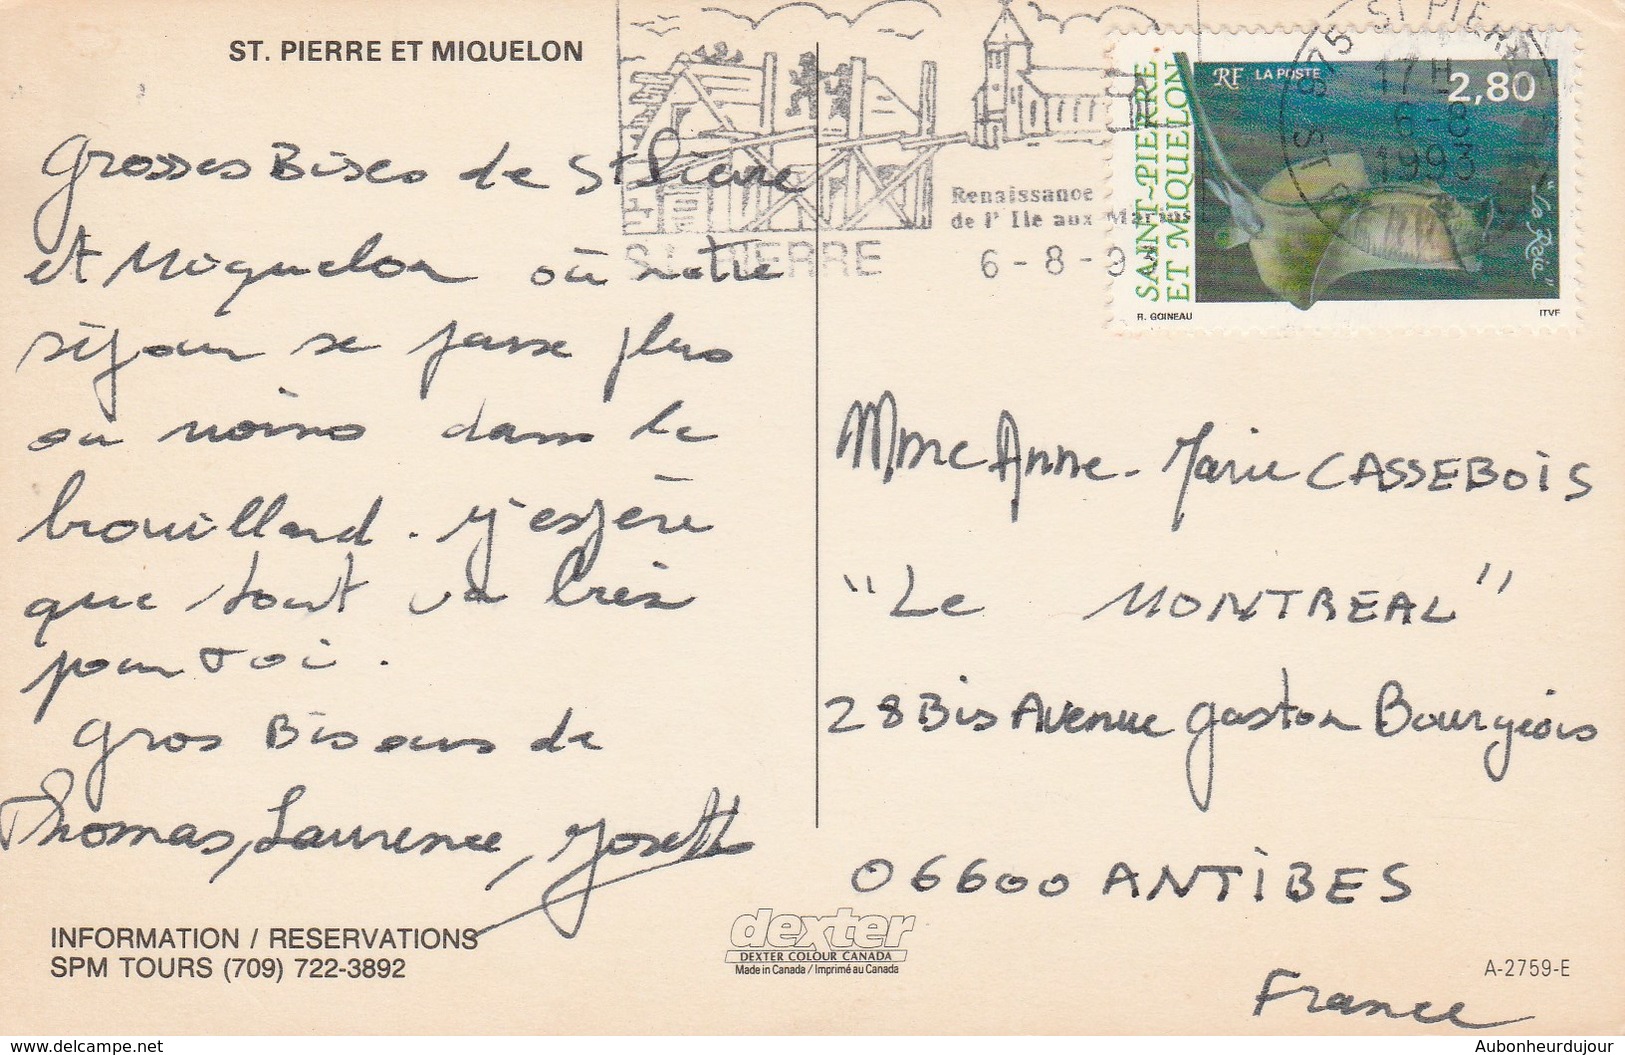 ST. PIERRE ET MIQUELON
Grosses Bises de St Pierre
et Miquelon où notre
séjour se passe plus
ou moins dans le
brouillard. J'espère
que tout va bien
pour toi.
Gros Bisous de
Thomas, Laurence, Josette
INFORMATION / RESERVATIONS
SPM TOURS (709) 722-3892
dexter
DEXTER COLOUR CANADA
Made in Canada / Imprimé au Canada
Renaissance
de l'Ile aux Marins
ST PIERRE
6-8-9
SAINT-PIERRE
ET MIQUELON
RF LA POSTE
2,80
"La Raie"
R. GOINEAU
ITVF
975 ST PIERRE
17H
6-8
1993
Mme Anne-Marie CASSEBOIS
"Le MONTREAL"
28 Bis Avenue Gaston Bourgeois
06600 ANTIBES
A-2759-E
France
delcampe.net
Aubonheurdujour